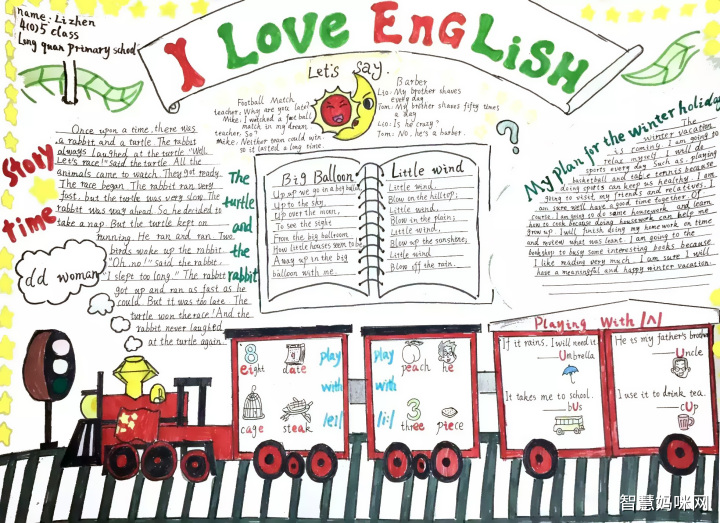 name: Lizhen
4(0)5 class
Long quan primary school
I Love EngLiSH
Let's say.
Football Match
teacher: Why are you late?
Mike: I watched a football
match in my dream.
teacher: So?
Mike: Neither team could win,
so it lasted a long time.
Barber
Leo: My brother shaves
every day.
Tom: My brither shaves fifty times
a day
Leo: Is he crazy?
Tom: No, he's a barber.
Story
time
The
turtle
and
the
rabbit
Once upon a time, there was
a rabbit and a turtle. The rabbit
always laughed at the turtle. "Well.
Let's race!" Said the turtle. All the
animals came to watch. They got ready.
The race began. The rabbit ran very
fast, but the turtle was very slow. The
rabbit was way ahead. So he decided to
take a nap. But the turtle kept on
running. He ran and ran. Two
birds woke up the rabbit.
"Oh, no!" said the rabbit.
"I slept too long." The rabbit
got up and ran as fast as he
could. But it was too late. The
turtle won the race! And the
rabbit never laughed
at the turtle again.
dd woman
Big Balloon
Up, up we go in a big balloon,
Up to the sky,
Up over the moon,
To see the sight
From the big balloon
How little houses seem to be
A way up in the big
balloon with me.
Little wind
Little wind,
Blow on the hilltop;
Little wind,
Blow in the plain;
Little wind,
Blow up the sunshine;
Little wind
Blow off the rain.
?
My plan for the winter holiday
The
winter vacation
is coming. I am going to
relax myself. I will do
sports every day. Such as: playing
basketball and table tennis because
doing sports can keep us healthy. I am
going to visit my friends and relatives. I
am sure we'll have a good time together. Of
course, I am going to do some homework and learn
how to cook because doing housework can help me
grow up. I will finish doing my home work on time
and review what was leant. I am going to the
bookshop to busy some interesting books because
I like reading very much. I am sure I will
have a meaningful and happy winter vacation.
8
eight
date
cage
steak
play
with
/eI/
play
with
/i:/
peach
he
3
three
piece
Playing With /ʌ/
If it rains. I will need it.
Umbrella
It takes me to school.
bUs
He is my father's brother
Uncle
I use it to drink tea.
cUp
智慧妈咪网